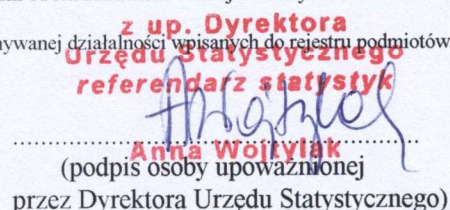 z up. Dyrektora
nywanej działalności wpisanych do rejestru podmiotów
Urzędu Statystycznego
referendarz statystyk
Anna Wojtylak
(podpis osoby upoważnionej
przez Dyrektora Urzędu Statystycznego)